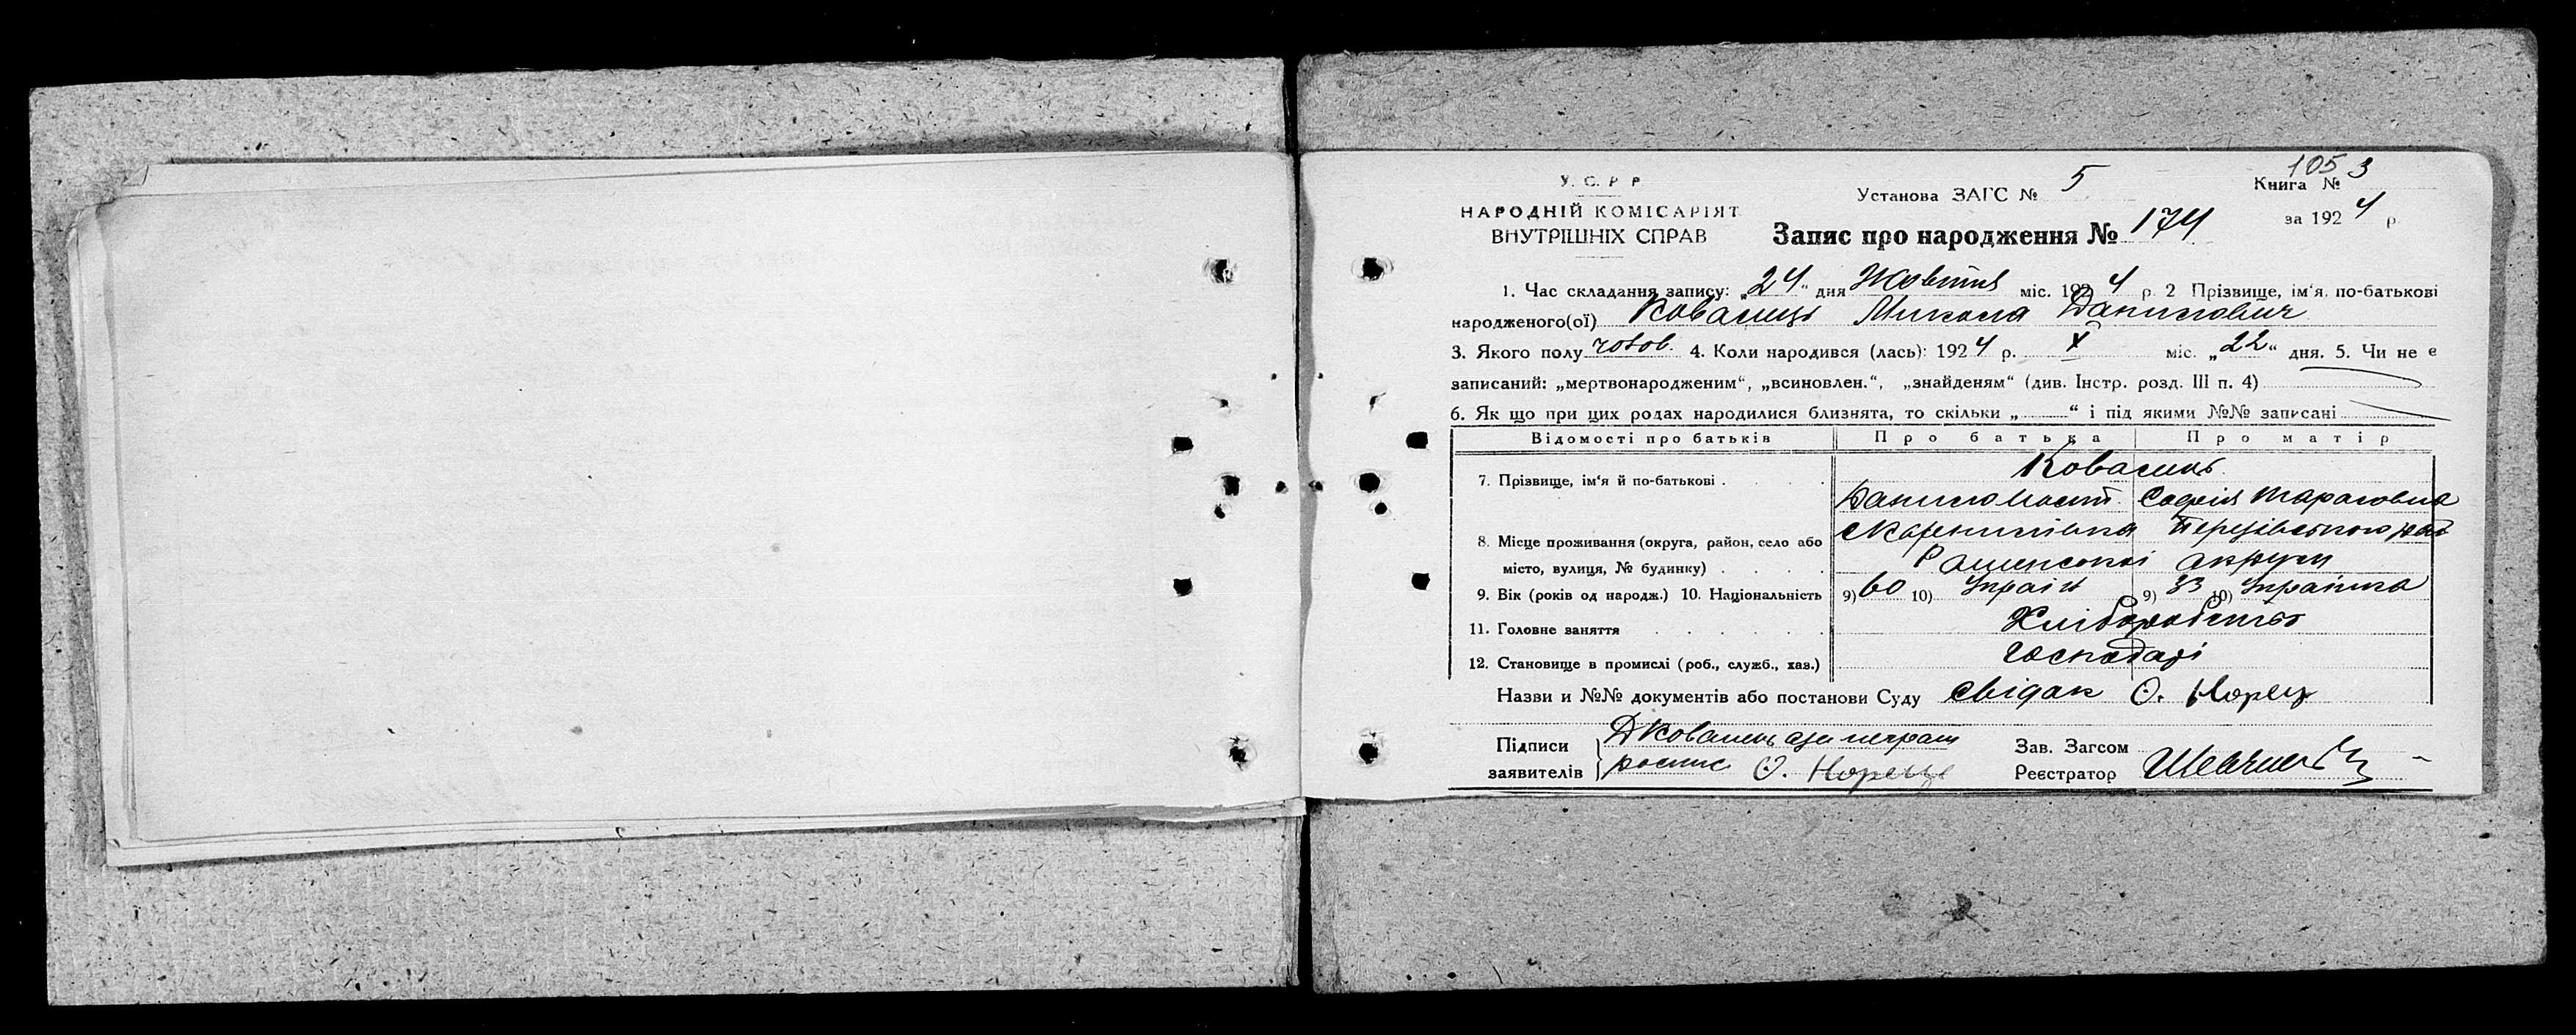 У. С. Р Р
НАРОДНІЙ КОМІСАРІЯТ
ВНУТРІШНІХ СПРАВ
Установа ЗАГС № 5
Запис про народження № 174
105 3
Книга №
за 1924 р.
1. Час складання запису: „24“ дня Жовтня міс. 1924 р. 2 Прізвище, ім'я, по-батькові
народженого(ої) Ковалець Микола Данилович
3. Якого полу чолов. 4. Коли народився (лась): 1924 р. X міс. „22“ дня. 5. Чи не є
записаний: „мертвонародженим“, „всиновлен.“, „знайденям“ (див. Інстр. розд. III п. 4)
6. Як що при цих родах народилися близнята, то скільки „ “ і під якими №№ записані
Відомості про батьків Про батька Про матір
Ковалець
7. Прізвище, ім'я й по-батькові . . . . Данило Софія Тарасовна
8. Місце проживання (округа, район, село або
місто, вулиця, № будинку) . . . . Роменської округи
9. Вік (років од народж.) 10. Національність 9) 60 10) Україн 9) 33 10) Українка
11. Головне заняття . . . . . Хліборобство
12. Становище в промислі (роб., служб., хаз.) Господарі
Назви и №№ документів або постанови Суду Свідок О. Норец
Підписи
заявителів
Д Ковалець а за неграм
роспис О. Норець
Зав. Загсом
Реєстратор